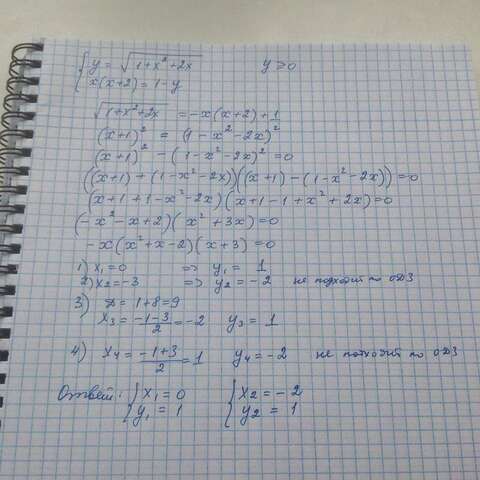 { y = √(1+x²+2x)    y ≥ 0
{ x(x+2) = 1-y
√(1+x²+2x) = -x(x+2)+1
(x+1)² = (1-x²-2x)²
(x+1)² - (1-x²-2x)² = 0
((x+1)+(1-x²-2x))((x+1)-(1-x²-2x)) = 0
(x+1+1-x²-2x)(x+1-1+x²+2x) = 0
(-x²-x+2)(x²+3x) = 0
-x(x²+x-2)(x+3) = 0
1) x₁=0 => y₁ = 1
2) x₂=-3 => y₂ = -2 не подходит по ОДЗ
3) D = 1+8=9
x₃ = (-1-3)/2 = -2 y₃ = 1
4) x₄ = (-1+3)/2 = 1 y₄ = -2 не подходит по ОДЗ
Ответ: { x₁ = 0    { x₂ = -2
{ y₁ = 1    { y₂ = 1